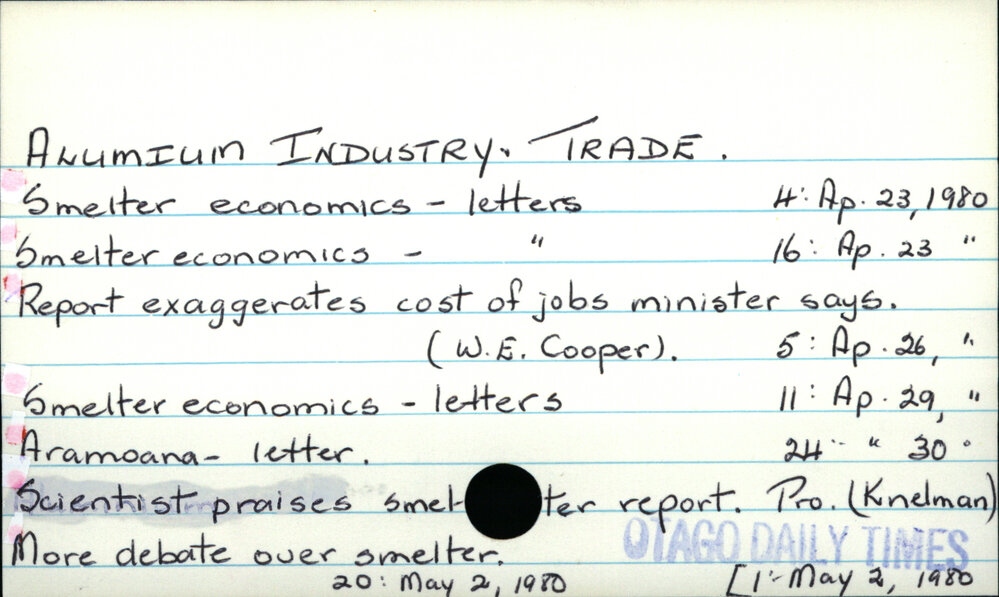 ALUMIUM INDUSTRY. TRADE.
Smelter economics - letters 4: Ap. 23, 1980
Smelter economics - " 16: Ap. 23 "
Report exaggerates cost of jobs minister says.
(W.E. Cooper). 5: Ap. 26, "
Smelter economics - letters 11: Ap. 29, "
Aramoana - letter. 24 " " 30 "
Scientist praises smelter report. Pro. (Knelman)
More debate over smelter. OTAGO DAILY TIMES
20: May 2, 1980 [1: May 2, 1980